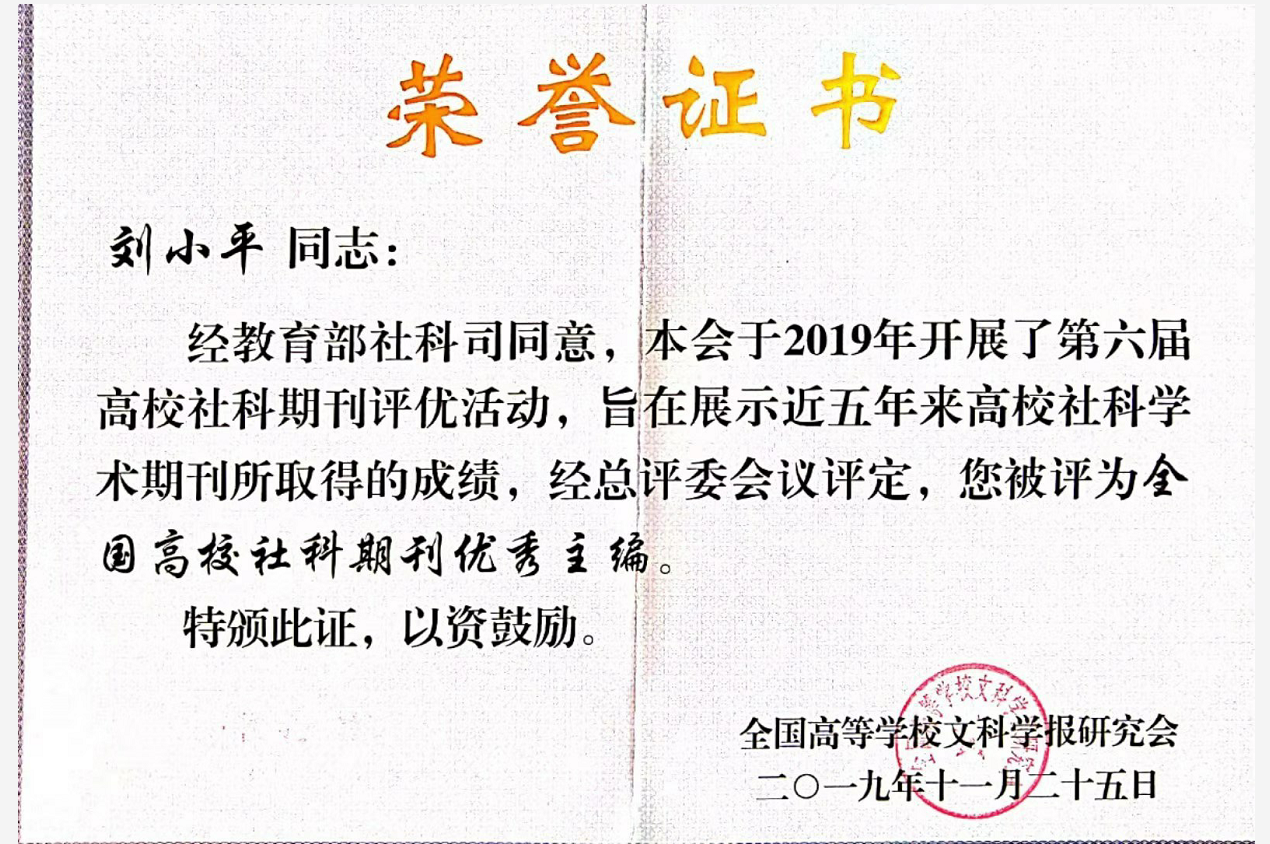 荣誉证书
刘小平 同志：
经教育部社科司同意，本会于2019年开展了第六届
高校社科期刊评优活动，旨在展示近五年来高校社科学
术期刊所取得的成绩，经总评委会议评定，您被评为全
国高校社科期刊优秀主编。
特颁此证，以资鼓励。
全国高等学校文科学报研究会
二〇一九年十一月二十五日